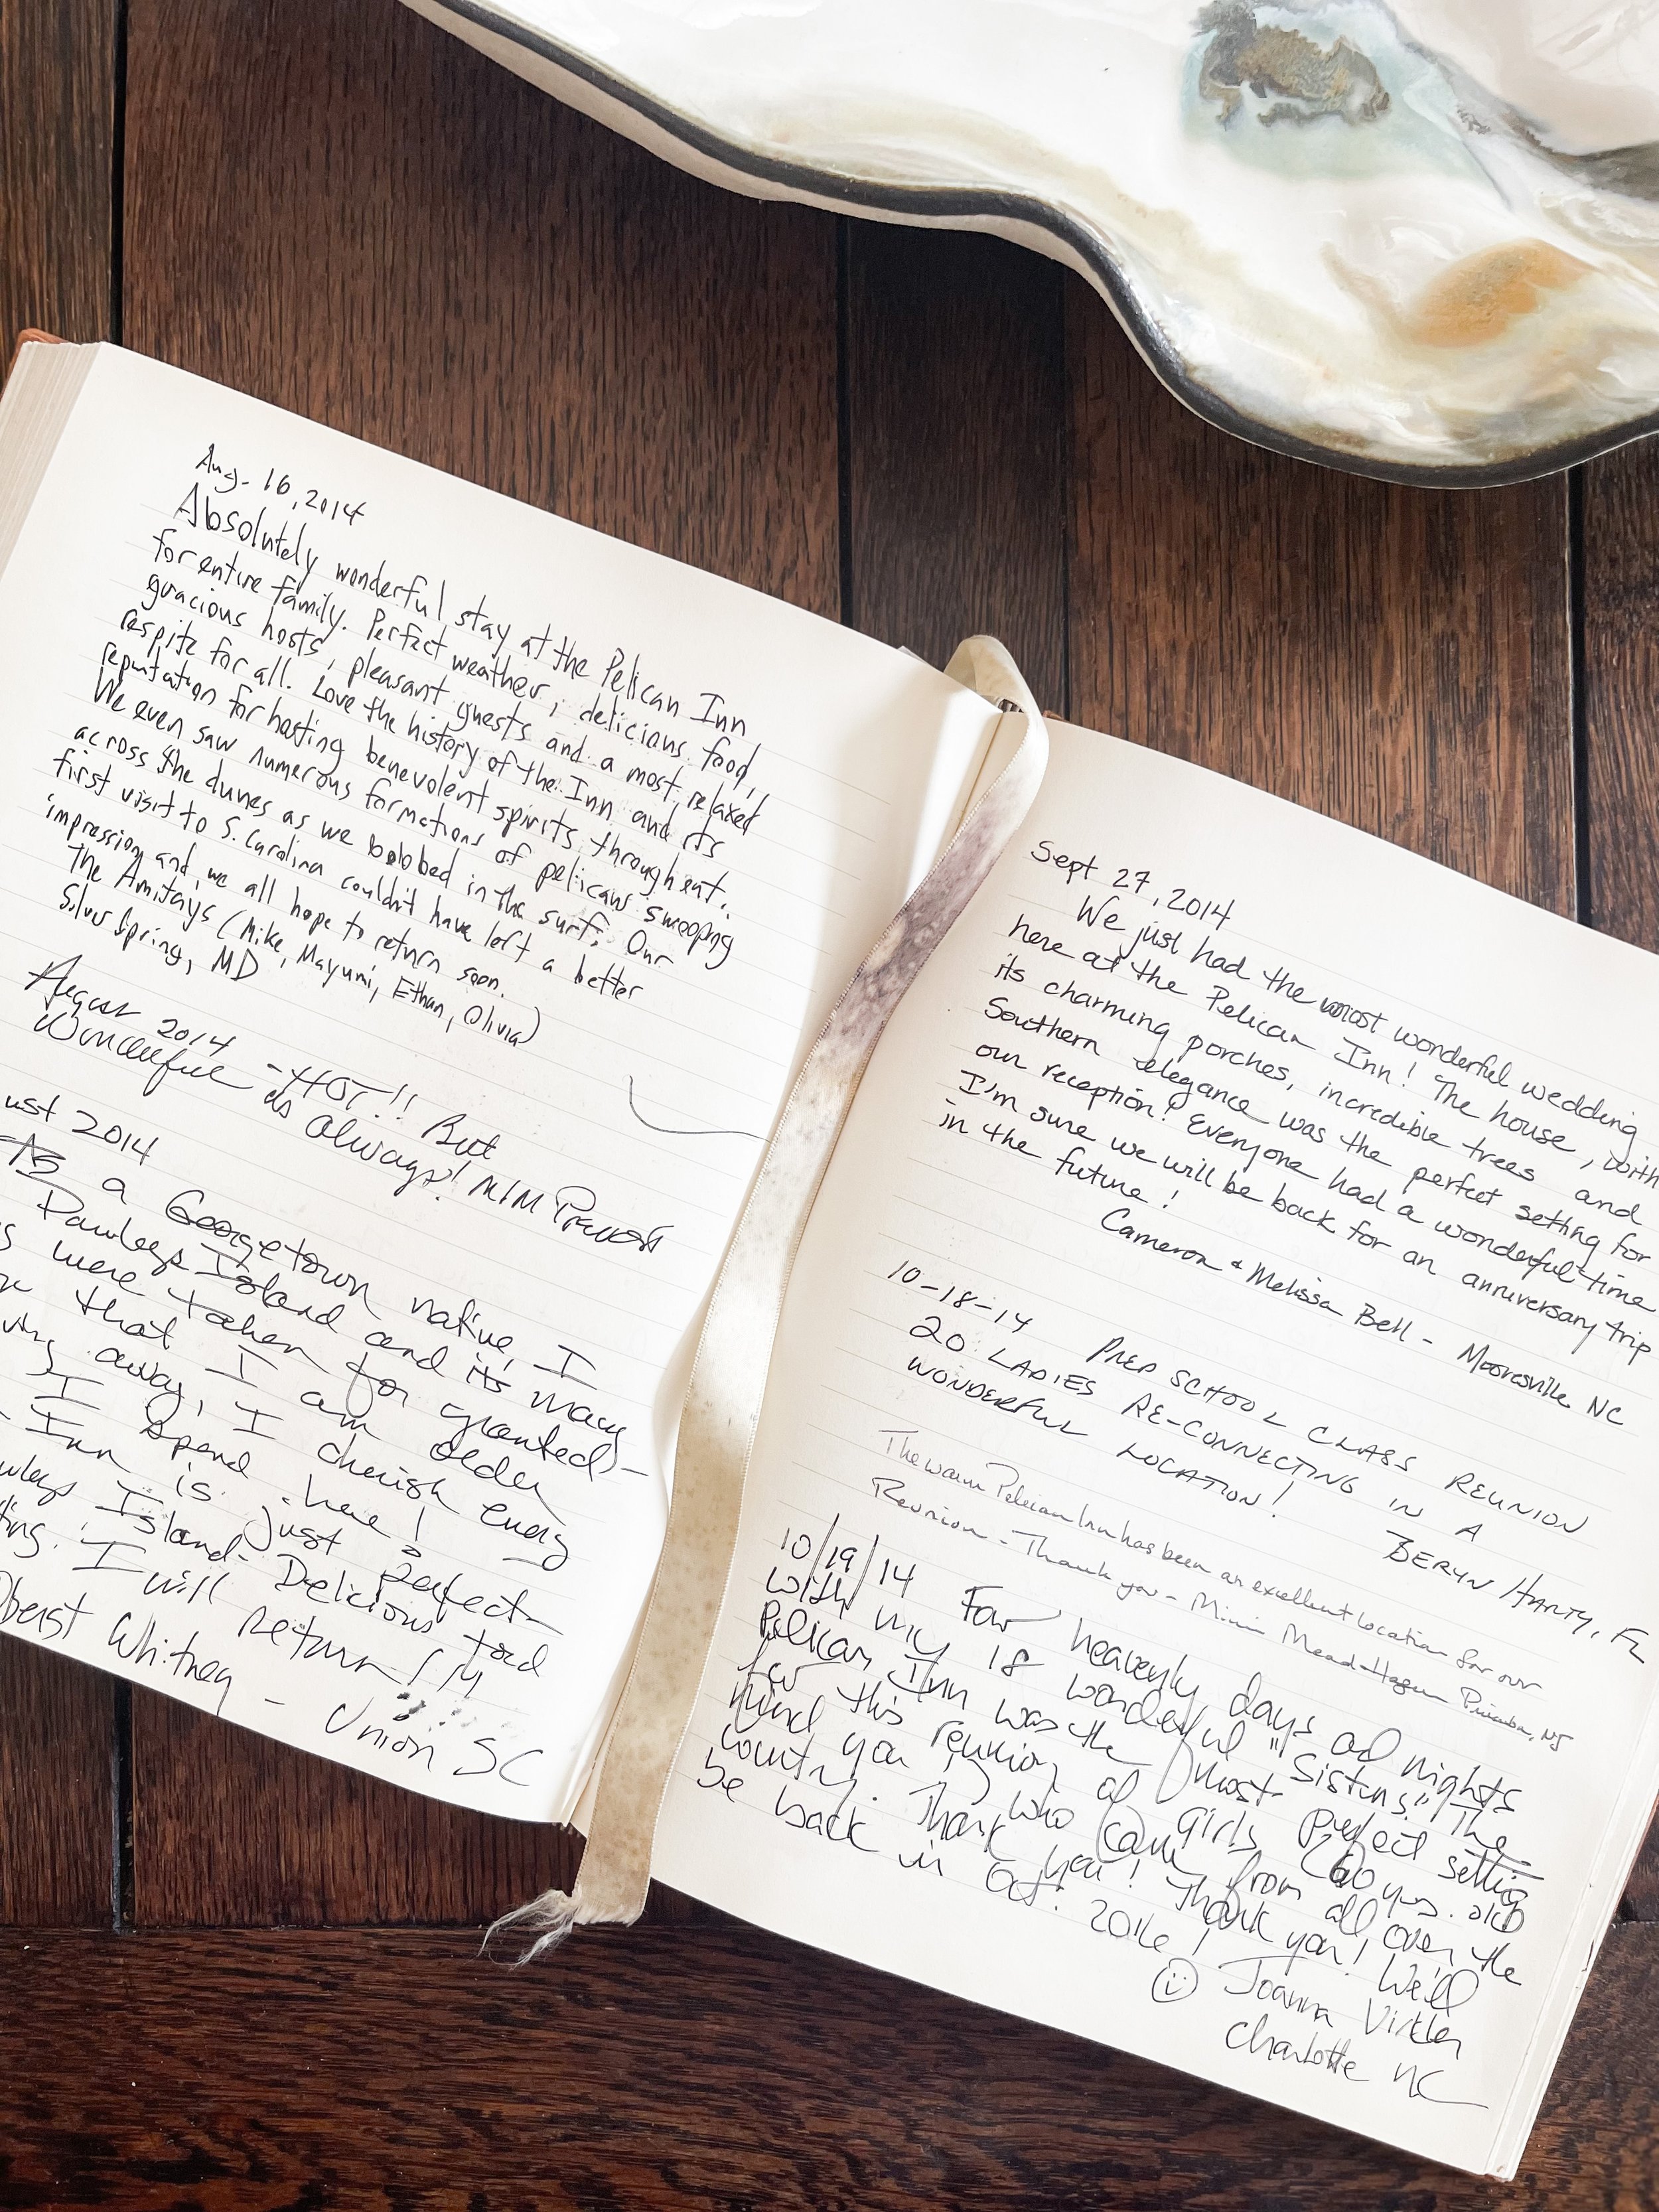 Aug. 16, 2014
Absolutely wonderful stay at the Pelican Inn
for entire family. Perfect weather, delicious food,
gracious hosts, pleasant guests and a most relaxed
respite for all. Love the history of the Inn and its
reputation for hosting benevolent spirits throughout.
We even saw numerous formations of pelicans swooping
across the dunes as we bobbed in the surf. Our
first visit to S. Carolina couldn't have left a better
impression and we all hope to return soon.
The Amitays (Mike, Mayumi, Ethan, Olivia)
Silver Spring, MD
August 2014 - HOT!! But
Wonderful as always! M/M
ust 2014
As a Georgetown native, I
Pawleys Island and its many
s were taken for granted -
that I am older
ving away, I cherish every
I spend here!
Inn is just perfect -
wleys Island - Delicious food
ting. I will return!!!
Whitney - Union SC
Sept 27, 2014
We just had the most wonderful wedding
here at the Pelican Inn! The house, with
its charming porches, incredible trees and
Southern elegance was the perfect setting for
our reception! Everyone had a wonderful time
I'm sure we will be back for an anniversary trip
in the future!
Cameron & Melissa Bell - Mooresville NC
10-18-14 PREP SCHOOL CLASS REUNION
20 LADIES RE-CONNECTING IN A
WONDERFUL LOCATION!
BERYN HARTY, FL
The warm Pelican Inn has been an excellent location for our
Reunion - Thank you - Mimi Mead-Hagen NJ
10/19/14 Four heavenly days and nights
with my 18 wonderful "sisters." The
Pelican Inn was the most perfect setting
for this reunion of girls (60 yrs. old
mind you) who came from all over the
country. Thank you! Thank you! We'll
be back in Oct. 2016!
Joanna
Charlotte NC